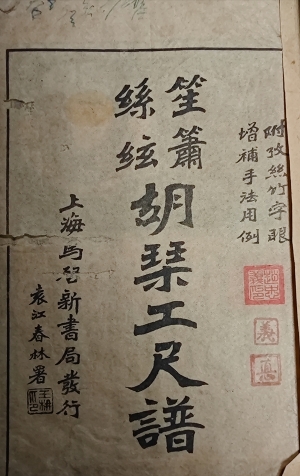 附孜絲竹字眼
增補手法用例
笙簫
絲絃
胡琴工尺譜
上海馬啓新書局發行
袁江春林署
義
惠